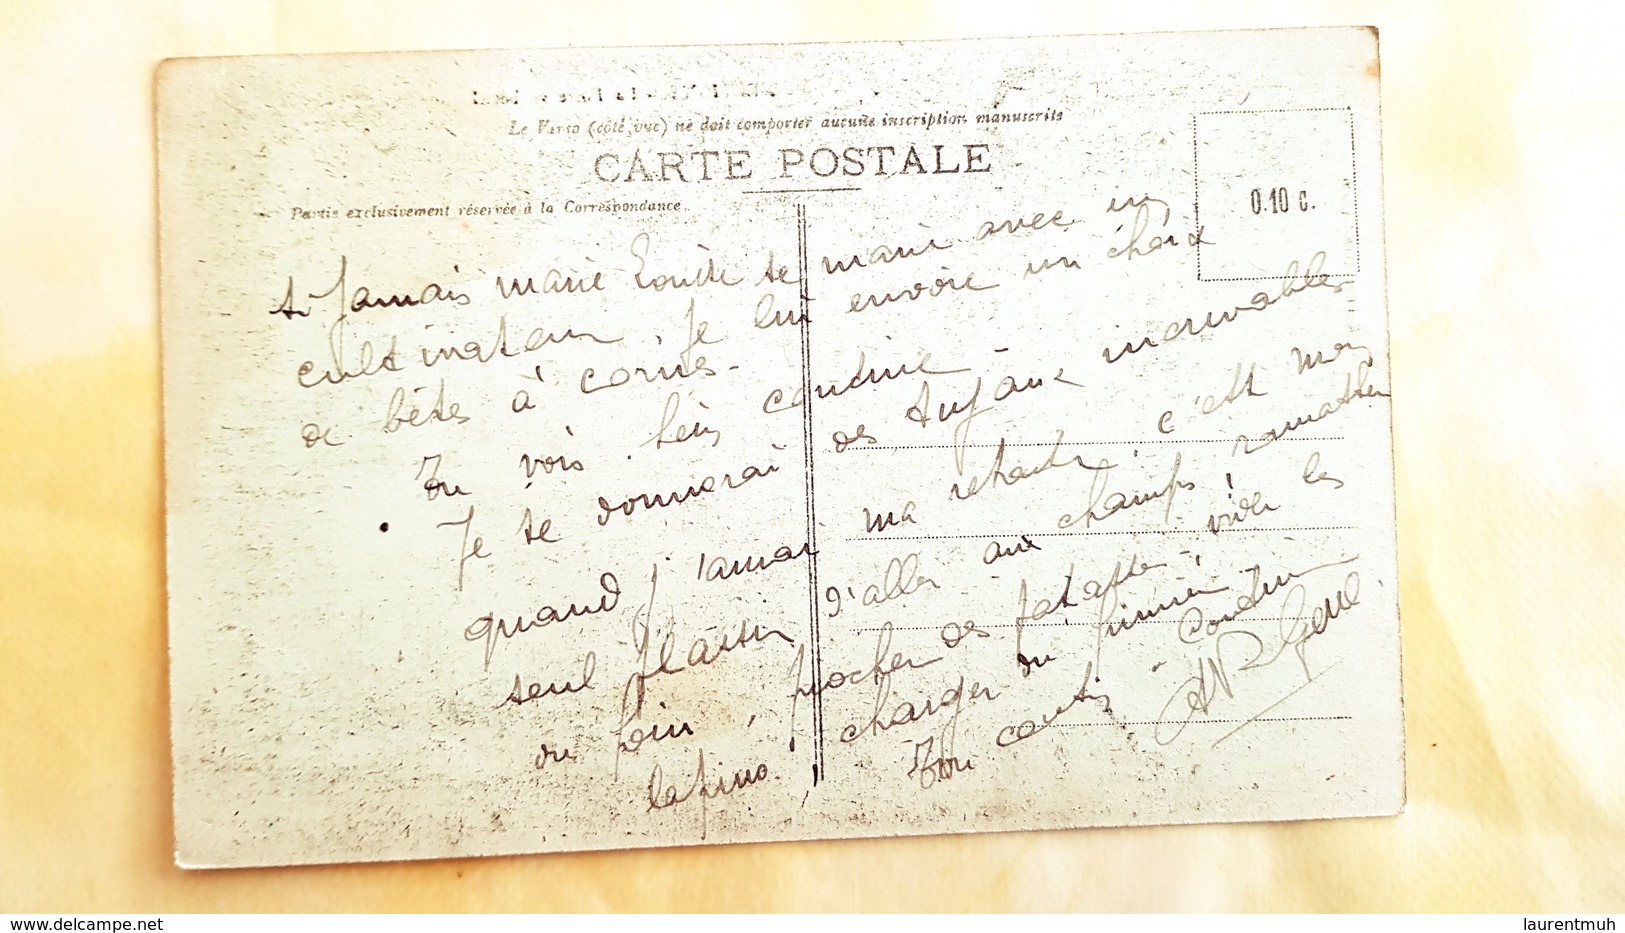 Le Verso (côté vue) ne doit comporter aucune inscription manuscrite
CARTE POSTALE
Partie exclusivement réservée à la Correspondance
0.10 c.
si jamais marie Louise se marie avec un
cultivateur, je lui envoie un choix
de bêtes à cornes.
Tu vois bien cousine
Je te donnerai des tuyaux increvables
quand j'aurai ma retraite, c'est mon
seul plaisir d'aller aux champs, ramasser
du foin, piocher des patates, vider les
lapins, charger du fumier
Ton cousin
delcampe.net
laurentmuh